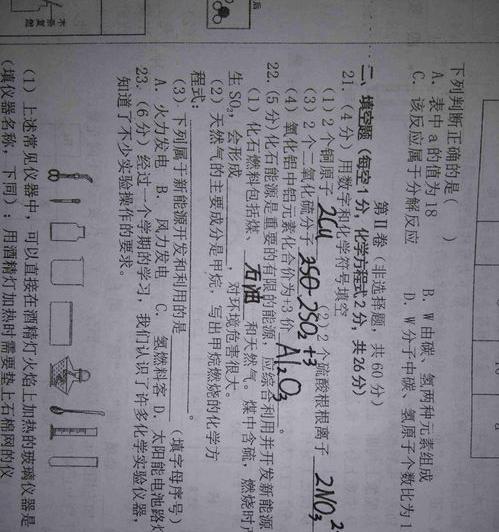 下列判断正确的是( )
A. 表中 a 的值为 18 B. W 由碳、氢两种元素组成
C. 该反应属于分解反应 D. W 分子中碳、氢原子个数比为 1
第Ⅱ卷（非选择题，共 60 分）
二、填空题（每空1分，化学方程式2分，共26分）
21.（4 分）用数字和化学符号填空
（1）2 个铜原子 2Cu （2）2 个硫酸根离子 2NO₃²
（3）2 个二氧化硫分子 2SO₂
（4）氧化铝中铝元素化合价为+3 价 +3 Al₂O₃。
22.（5 分）化石能源是重要的有限的能源，应综合利用并开发新能源
（1）化石燃料包括煤、石油和天然气。煤中含硫，燃烧时产
生 SO₂，会形成，对环境危害很大。
（2）天然气的主要成分是甲烷，写出甲烷燃烧的化学方
程式：
（3）下列属于新能源开发和利用的是（填字母序号）
A. 火力发电 B. 风力发电 C. 氢燃料客 D. 太阳能电池路灯
23.（6 分）经过一个学期的学习，我们认识了许多化学实验仪器，
知道了不少实验操作的要求。
（1）上述常见仪器中，可以直接在酒精灯火焰上加热的玻璃仪器是
（填仪器名称，下同）；用酒精灯加热时需要垫上石棉网的仪